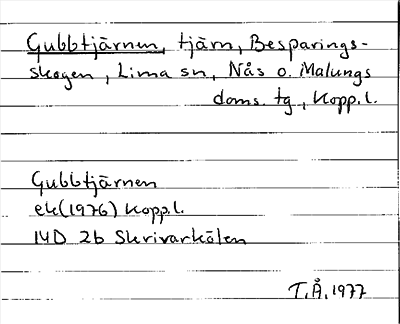 Gubbtjärnen, tjärn, Besparings-
skogen, Lima sn, Nås o. Malungs
doms. tg, Kopp.l.
Gubbtjärnen
ek(1976) Kopp.l.
14D 2b Skrivarkölen
T.Å. 1977